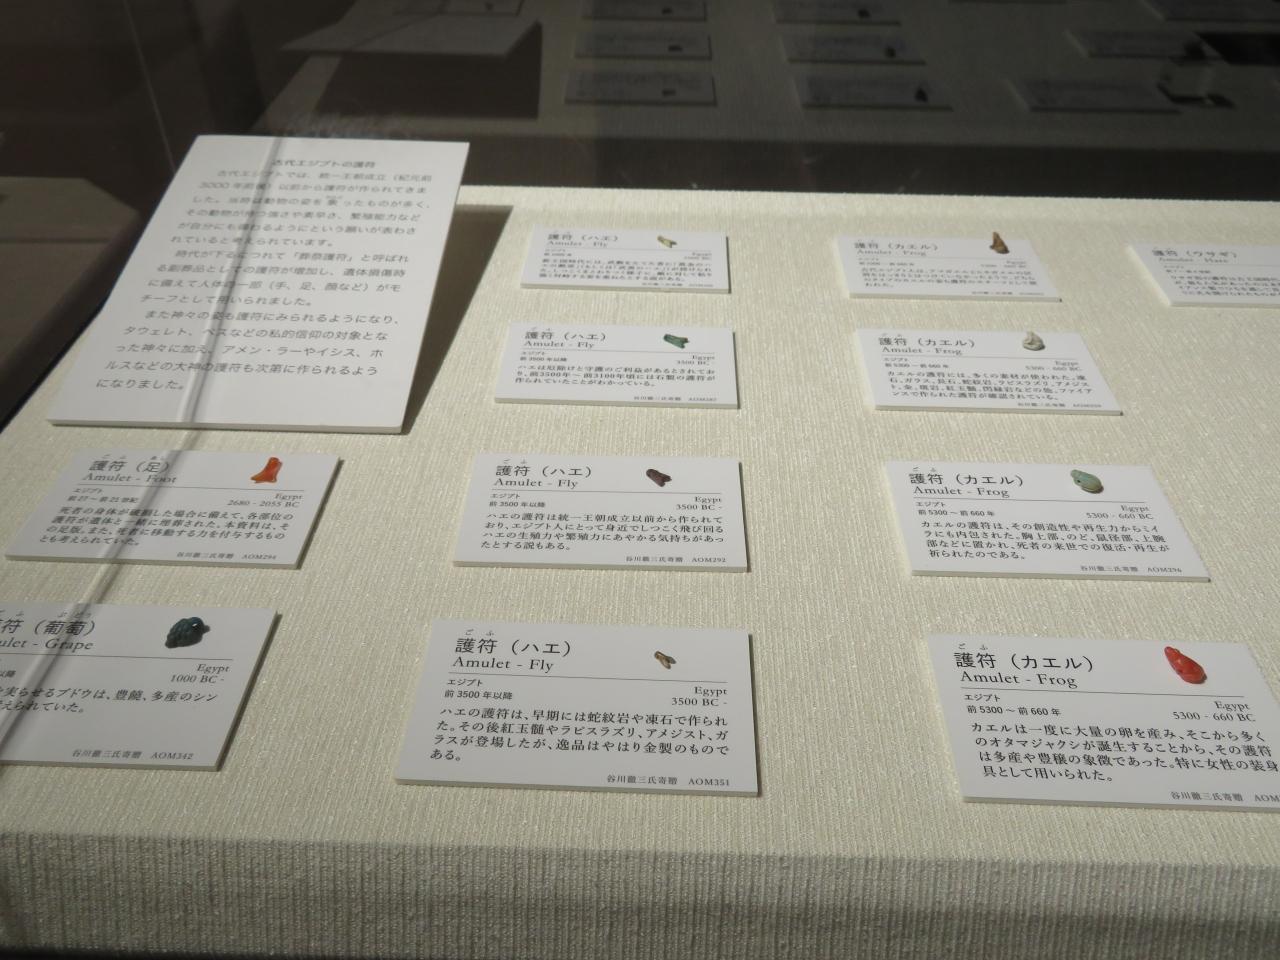 古代エジプトの護符
古代エジプトでは、統一王朝成立（紀元前
3000年前後）以前から護符が作られてきま
した。当時は動物の姿を象ったものが多く、
その動物が持つ強さや素早さ、繁殖能力など
が自分にも備わるようにという願いが表わさ
れていると考えられています。
時代が下るにつれて「葬祭護符」と呼ばれ
る副葬品としての護符が増加し、遺体損傷時
に備えて人体の一部（手、足、顔など）がモ
チーフとして用いられました。
また神々の姿も護符にみられるようになり、
タウェレト、ベスなどの私的信仰の対象とな
った神々に加え、アメン・ラーやイシス、ホ
ルスなどの大神の護符も次第に作られるよう
になりました。
護符（ハエ）
Amulet - Fly
エジプト
Egypt
護符（カエル）
Amulet - Frog
エジプト
Egypt
護符（ウサギ）
Amulet - Hare
護符（ハエ）
Amulet - Fly
エジプト
前3500年以降
Egypt
3500 BC -
ハエは厄除けと守護のご利益があるとされてお
り、前3500年～前3100年頃には石製の護符が
作られていたことがわかっている。
谷川徹三氏寄贈 AOM287
護符（カエル）
Amulet - Frog
エジプト
前5300～前660年
Egypt
5300 - 660 BC
カエルの護符には、多くの素材が使われた。凍
石、ガラス、長石、蛇紋岩、ラピスラズリ、アメジス
ト、金、斑岩、紅玉髄、閃緑岩などの他、ファイア
ンスで作られた護符が確認されている。
谷川徹三氏寄贈
護符（足）
Amulet - Foot
エジプト
前27～前21世紀
Egypt
2680 - 2055 BC
死者の身体が破損した場合に備えて、各部位の
護符が遺体と一緒に埋葬された。本資料は、そ
の足版。また、死者に移動する力を付与するもの
とも考えられていた。
谷川徹三氏寄贈 AOM294
護符（ハエ）
Amulet - Fly
エジプト
前3500年以降
Egypt
3500 BC -
ハエの護符は統一王朝成立以前から作られて
おり、エジプト人にとって身近でしつこく飛び回る
ハエの生殖力や繁殖力にあやかる気持ちがあっ
たとする説もある。
谷川徹三氏寄贈 AOM292
護符（カエル）
Amulet - Frog
エジプト
前5300～前660年
Egypt
5300 - 660 BC
カエルの護符は、その創造性や再生力からミイ
ラにも内包された。胸上部、のど、鼠径部、上腕
部などに置かれ、死者の来世での復活・再生が
祈られたのである。
谷川徹三氏寄贈 AOM296
符（葡萄）
ulet - Grape
降
Egypt
1000 BC -
実らせるブドウは、豊饒、多産のシン
えられていた。
谷川徹三氏寄贈 AOM342
護符（ハエ）
Amulet - Fly
エジプト
前3500年以降
Egypt
3500 BC -
ハエの護符は、早期には蛇紋岩や凍石で作られ
た。その後紅玉髄やラピスラズリ、アメジスト、ガ
ラスが登場したが、逸品はやはり金製のもので
ある。
谷川徹三氏寄贈 AOM351
護符（カエル）
Amulet - Frog
エジプト
前5300～前660年
Egypt
5300 - 660 BC
カエルは一度に大量の卵を産み、そこから多く
のオタマジャクシが誕生することから、その護符
は多産や豊穣の象徴であった。特に女性の装身
具として用いられた。
谷川徹三氏寄贈 AOM